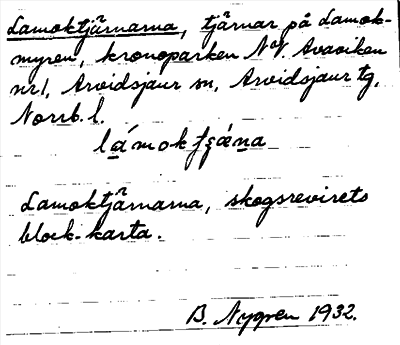 Lamoktjärnarna, tjärnar på Lamok-
myren, kronoparken NV. Avaviken
nr 1, Arvidsjaur sn, Arvidsjaur tg,
Norrb. l.
Lamoktjärnarna, skogsrevirets
block-karta.
B. Nygren 1932.